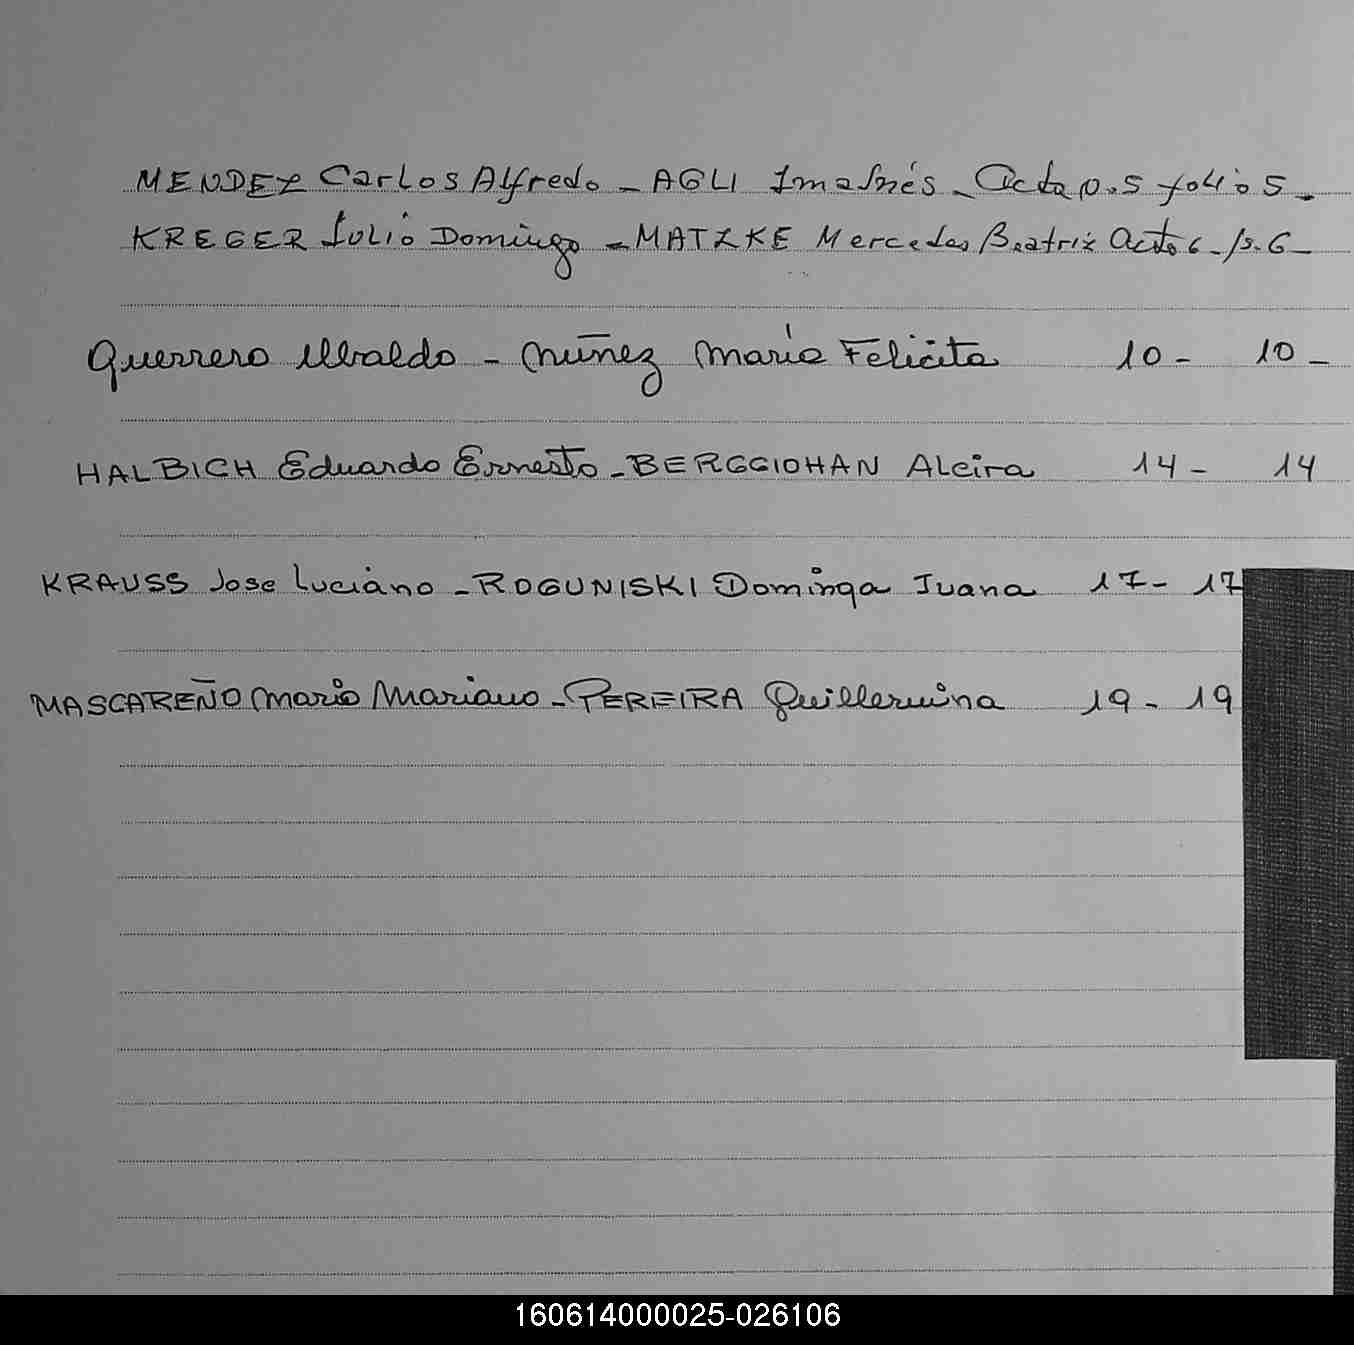 MENDEZ Carlos Alfredo - AGLI Ima Inés - Acta no. 5 folio 5 -
KREGER Julio Domingo - MATZKE Mercedes Beatriz Acta 6 - fs. 6 -
Guerrero Ubaldo - Nuñez María Felicita 10 - 10 -
HALBICH Eduardo Ernesto - BERGGIOHAN Alcira 14 - 14
KRAUSS Jose Luciano - ROGUNISKI Dominga Juana 17 - 17
MASCAREÑO Mario Mariano - PEREIRA Guillermina 19 - 19
160614000025-026106